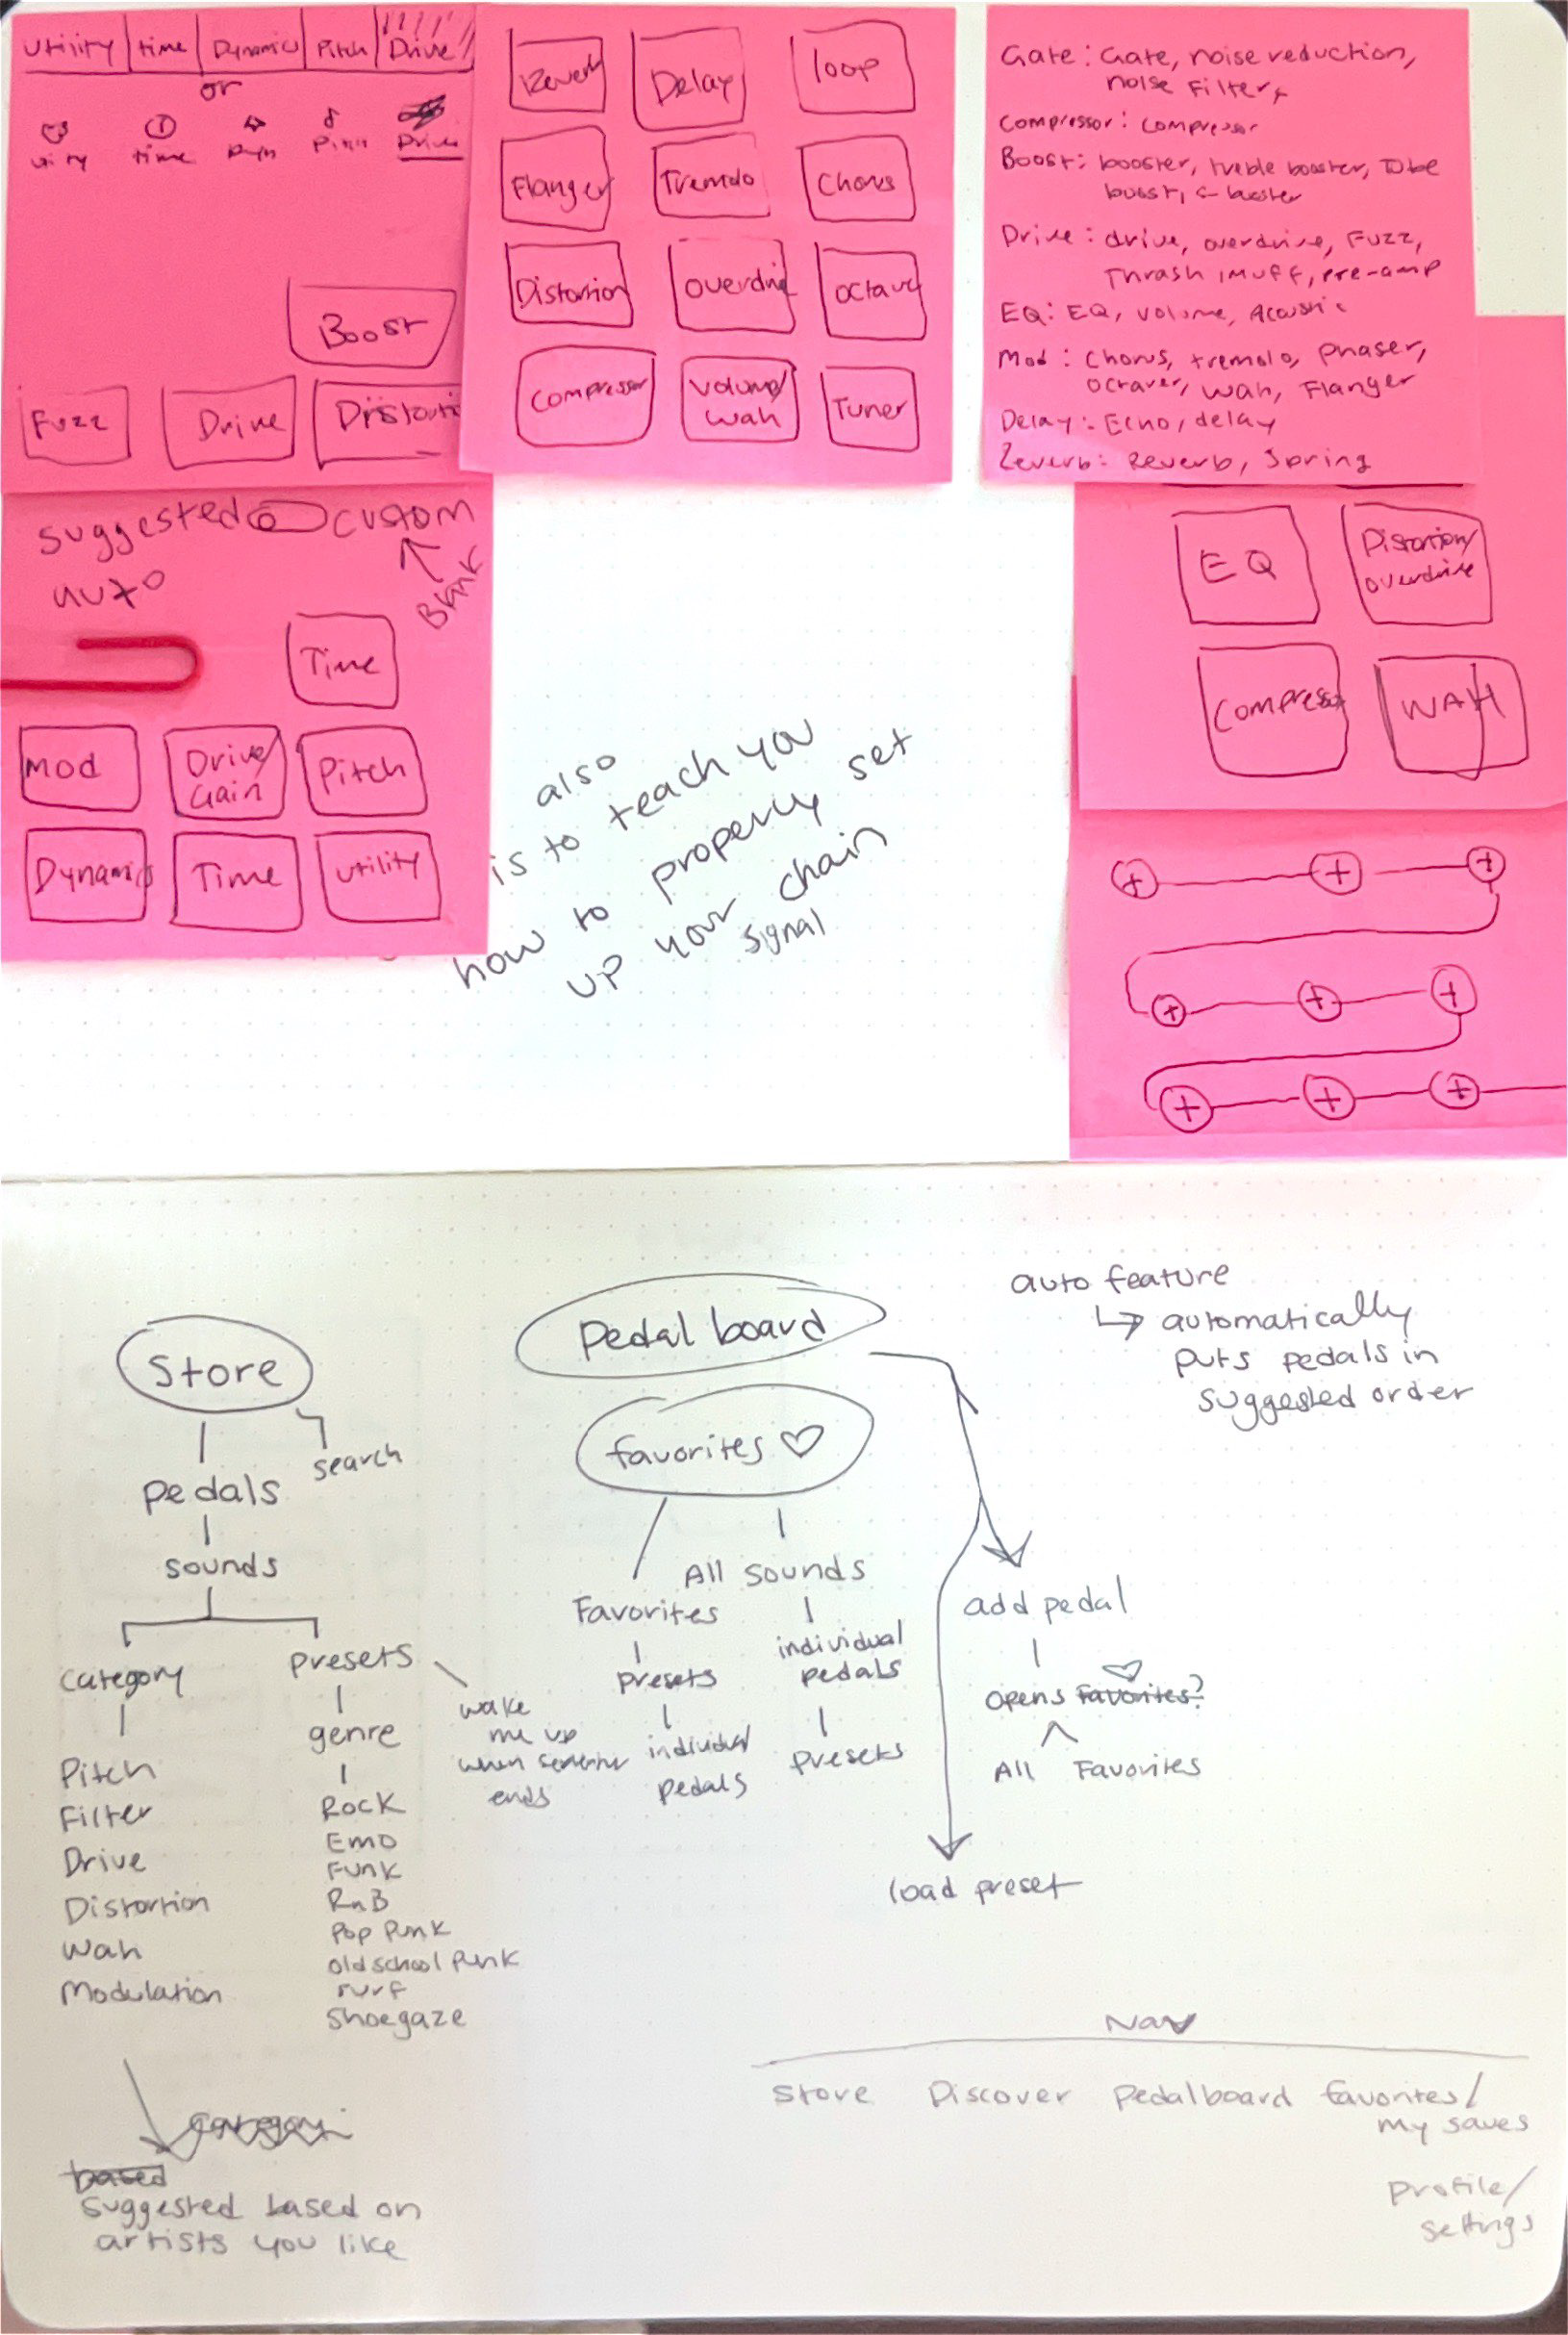 utility time Dynamics Pitch Drive
or
time Drive
Boost
Fuzz Drive Distorti
Reverb Delay loop
Flanger Tremolo Chorus
Distortion overdrive octave
compressor volume/
wah Tuner
Gate: Gate, noise reduction,
noise Filter,
compressor: compressor
Boost: booster, treble booster, Tube
boost, booster
Drive: drive, overdrive, Fuzz,
Thrash, Muff, pre-amp
EQ: EQ, volume, Acoustic
Mod: Chorus, tremolo, phaser,
octaver, wah, Flanger
Delay: Echo, delay
Reverb: Reverb, Spring
suggested custom
auto
Blank
Time
Mod Drive/
Gain Pitch
Dynamic Time utility
EQ Distortion/
overdrive
Compressor WAH
also
is to teach you
how to properly set
up your chain
signal
Store
search
pedals
sounds
Category
Pitch
Filter
Drive
Distortion
Wah
Modulation
presets
genre
Rock
Emo
Funk
RnB
Pop Punk
old school Punk
surf
Shoegaze
wake
me up
when september
ends
based
suggested based on
artists you like
Pedal board
favorites
Favorites
presets
individual
pedals
All sounds
individual
pedals
presets
add pedal
opens Favorites?
All Favorites
load preset
auto feature
automatically
puts pedals in
suggested order
Nav
Store Discover Pedalboard favorites/
my saves
profile/
settings